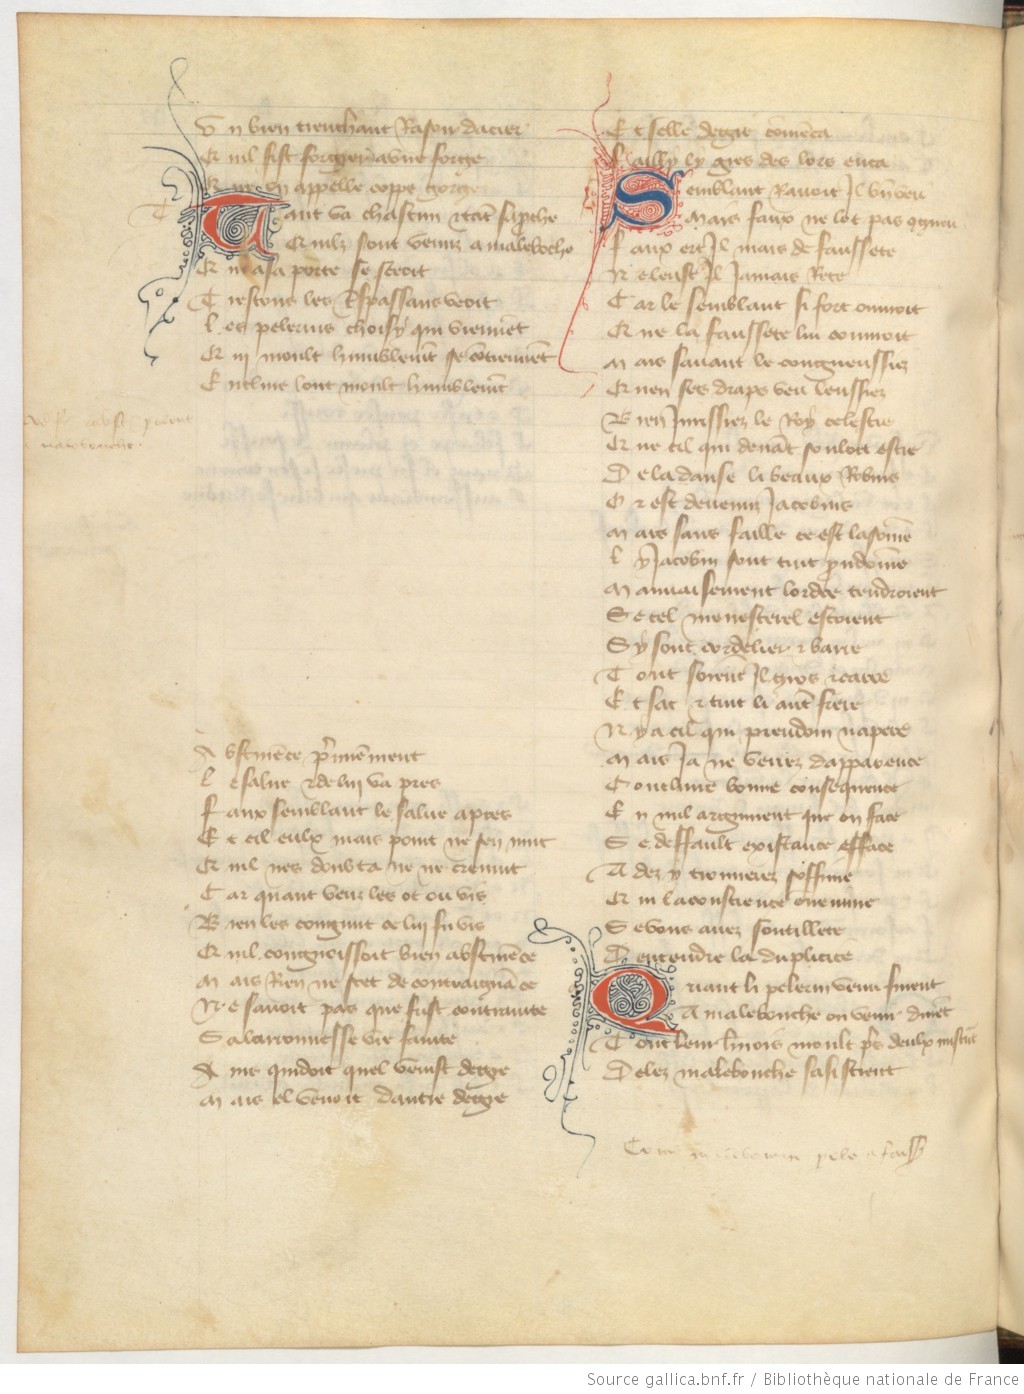 U n bien trenchant Rasour dacier
Q uil fist forgier a une forge
Q ue len appelle coppe gorge
T ant va chascun et tant saproche
Q uilz sont venuz a malebouche
Q ui a sa porte se seoit
T restous les Trespassans veoit
L es pelerins choisy qui viennent
Q ui moult humblement se contiennent
E ncline lont moult humblement
A bstinence premierement
L e salue et de lui va pres
F aux semblant le salue apres
E t cil eulx mais point ne sen mut
Q uil nes doubta ne ne cremut
C ar quant veuz les ot ou vis
B ien les congnut ce lui fu vis
Q uil congnoissoit bien abstinence
M ais Rien ne scet de contraignance
N e savoit pas que fust contrainte
S a larronnesse vie fainte
A ins cuidoit quel venist de gre
M ais el venoit dautre degre
E t selle de gre commenca
F ailly ly gres des lors enca
S emblant Ravoit Il bien veu
M ais faux ne lot pas congneu
F aux ert Il mais de faussete
N e leust Il Jamais Rete
C ar le semblant si fort ouvroit
Q ue la faussete lui couvroit
M ais savant le congneussiez
Q uen ses draps veu leussiez
B ien Jurissiez le Roy celestre
Q ue cil qui devant souloit estre
D e la danse li beaux Robins
O r est devenuz Jacobins
M ais sans faille ce est la somme
L y Jacobin sont tuit preudomme
M auvaisement lordre tendroient
S e tel menesterel estoient
S y sont cordelier et barre
T out soient Il gros et carre
E t sac et tuit li autre frere
N y a cil qui preudom napere
M ais Ja ne verrez dapparence
C onclure bonne consequence
E n nul argument que on face
S e deffault existance efface
A dez y trouverez soffime
Q ui la conscience envenime
S e vous avez soutillete
D entendre la duplicite
Q uant li pelerin venu furent
A malebouche ou venir durent
T out leur hernois moult pres deulx mistrent
D elez malebouche sasistrent